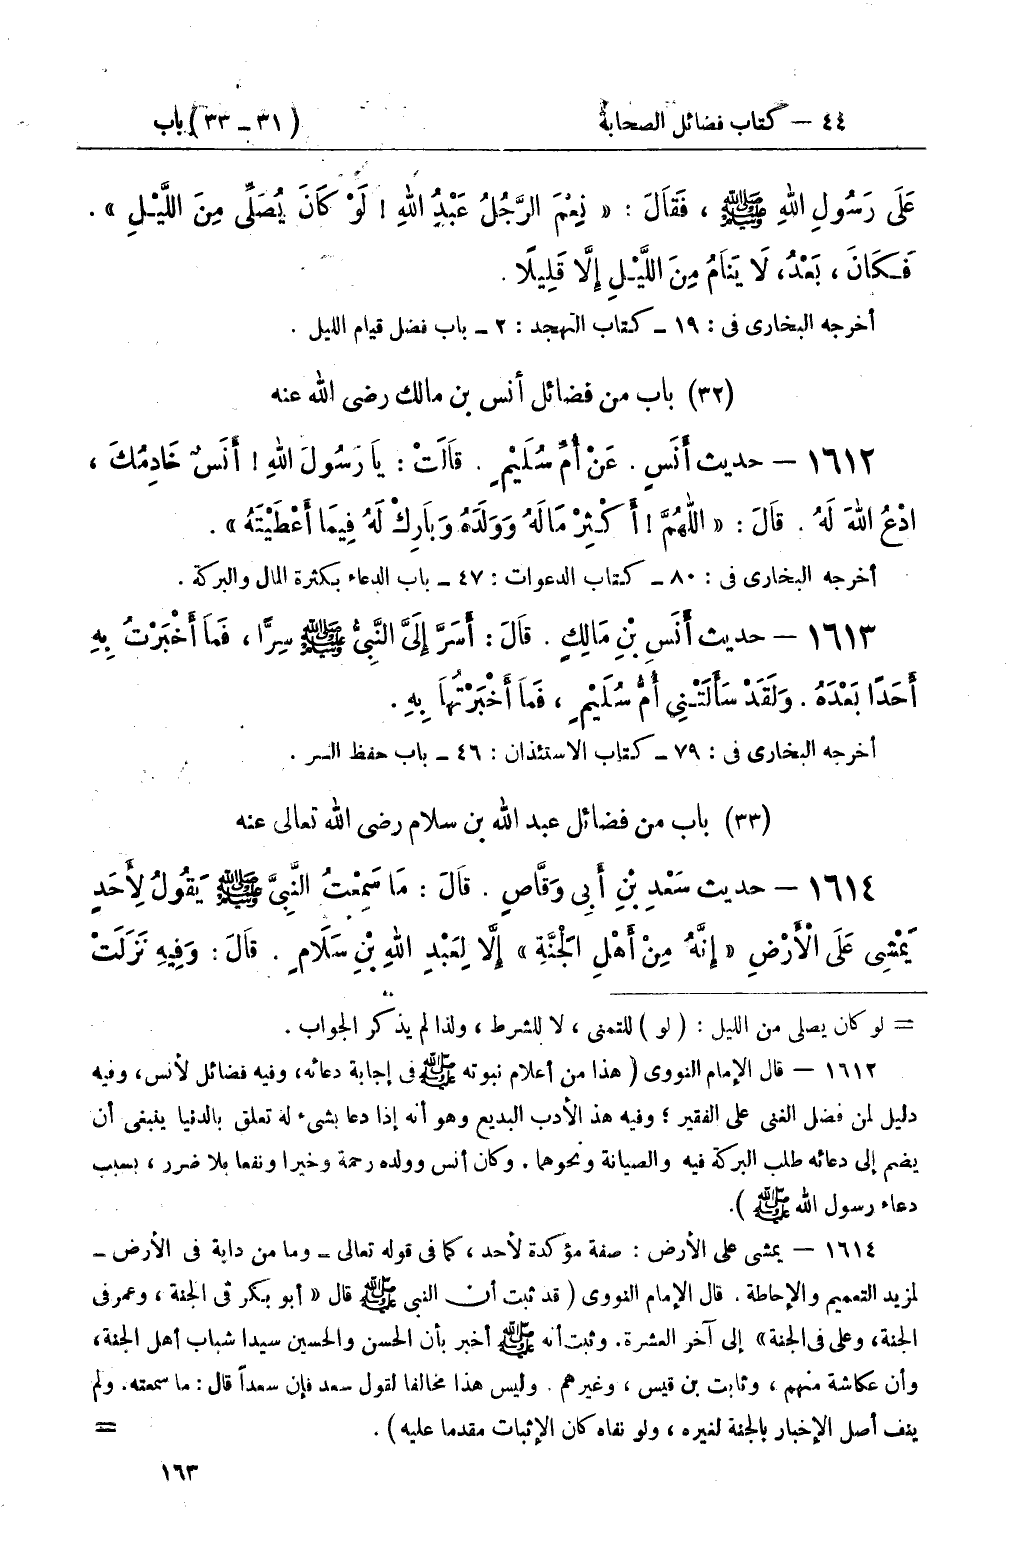 ٤٤ — كتاب فضائل الصحابة (٣١ – ٣٣) باب
عَلَى رَسُولِ اللهِ ﷺ ، فَقَالَ : « نِعْمَ الرَّجُلُ عَبْدُ اللهِ ! لَوْ كَانَ يُصَلِّى مِنَ اللَّيْلِ » .
فَكَانَ ، بَعْدُ، لَا يَنَامُ مِنَ اللَّيْلِ إِلَّا قَلِيلًا .
أخرجه البخارى فى : ١٩ ـ كتاب التهجد : ٢ ـ باب فضل قيام الليل .
(٣٢) باب من فضائل أنس بن مالك رضى الله عنه
١٦١٢ — حديث أَنَسٍ . عَنْ أُمِّ سُلَيْمٍ . قَالَتْ : يَا رَسُولَ اللهِ ! أَنَسٌ خَادِمُكَ ،
ادْعُ اللهَ لَهُ . قَالَ : « اللّٰهُمَّ ! أَكْثِرْ مَالَهُ وَوَلَدَهُ وَبَارِكْ لَهُ فِيمَا أَعْطَيْتَهُ » .
أخرجه البخارى فى : ٨٠ ـ كتاب الدعوات : ٤٧ ـ باب الدعاء بكثرة المال والبركة .
١٦١٣ — حديث أَنَسِ بْنِ مَالِكٍ . قَالَ : أَسَرَّ إِلَىَّ النَّبِىُّ ﷺ سِرًّا ، فَمَا أَخْبَرْتُ بِهِ
أَحَدًا بَعْدَهُ . وَلَقَدْ سَأَلَتْنِى أُمُّ سُلَيْمٍ ، فَمَا أَخْبَرْتُهَا بِهِ .
أخرجه البخارى فى : ٧٩ ـ كتاب الاستئذان : ٤٦ ـ باب حفظ السر .
(٣٣) باب من فضائل عبد الله بن سلام رضى الله تعالى عنه
١٦١٤ — حديث سَعْدِ بْنِ أَبِى وَقَّاصٍ . قَالَ : مَا سَمِعْتُ النَّبِىَّ ﷺ يَقُولُ لِأَحَدٍ
يَمْشِى عَلَى الْأَرْضِ « إِنَّهُ مِنْ أَهْلِ الْجَنَّةِ » إِلَّا لِعَبْدِ اللهِ بْنِ سَلَامٍ . قَالَ : وَفِيهِ نَزَلَتْ
= لو كان يصلى من الليل : ( لو ) للتمنى ، لا للشرط ، ولذا لم يذكر الجواب .
١٦١٢ — قال الإمام النووى ( هذا من أعلام نبوته ﷺ فى إجابة دعائه، وفيه فضائل لأنس، وفيه
دليل لمن فضل الغنى على الفقير ؛ وفيه هذ الأدب البديع وهو أنه إذا دعا بشىء له تعلق بالدنيا ينبغى أن
يضم إلى دعائه طلب البركة فيه والصيانة ونحوهما . وكان أنس وولده رحمة وخيرا ونفعا بلا ضرر ، بسبب
دعاء رسول الله ﷺ ).
١٦١٤ — يمشى على الأرض : صفة مؤكدة لأحد ، كما فى قوله تعالى ـ وما من دابة فى الأرض ـ
لمزيد التعميم والإحاطة . قال الإمام النووى ( قد ثبت أن النبي ﷺ قال « أبو بكر فى الجنة ، وعمر فى
الجنة، وعلى فى الجنة» إلى آخر العشرة. وثبت أنه ﷺ أخبر بأن الحسن والحسين سيدا شباب أهل الجنة،
وأن عكاشة منهم ، وثابت بن قيس ، وغيرهم . وليس هذا مخالفا لقول سعد فإن سعداً قال : ما سمعته. ولم
ينف أصل الإخبار بالجنة لغيره ، ولو نفاه كان الإثبات مقدما عليه ) . =
١٦٣